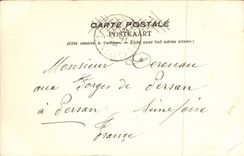 CARTE POSTALE
POSTKAART
(Côté réservé à l'adresse. — Zijde voor het adres alleen.)
Monsieur
aux Forges de Persan
à Persan Seine & Oise
France